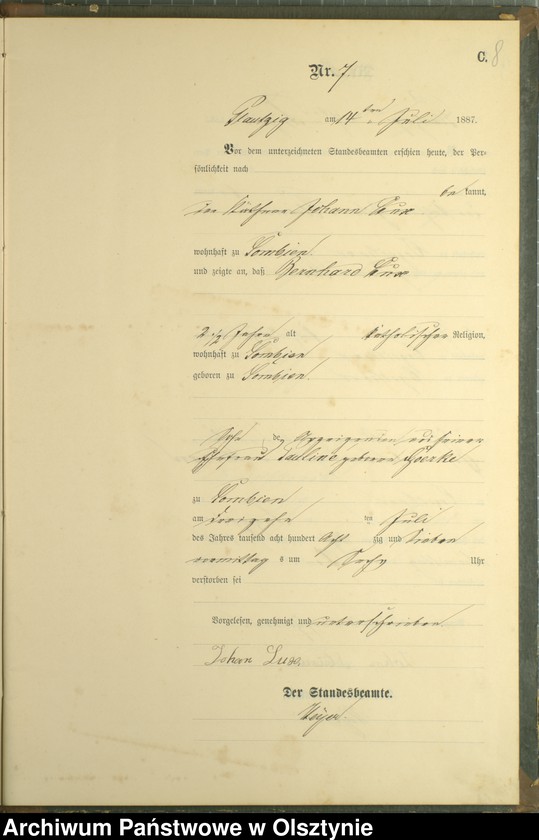 C. 8.
Nr. 7
Plautzig am 14 ten Juli 1887.
Vor dem unterzeichneten Standesbeamten erschien heute, der Per-
sönlichkeit nach
be kannt,
der Käthner Johann Lux
wohnhaft zu Gombien
und zeigte an, daß Bernhard Lux
2 1/2 Jahre alt katholischer Religion,
wohnhaft zu Gombien
geboren zu Gombien
Sohn des Anzeigenden und seiner
Ehefrau Pauline geboren Goerke
zu Gombien
am dreizehn ten Juli
des Jahres tausend acht hundert Acht zig und Sieben
vormittag s um Sechs Uhr
verstorben sei
Vorgelesen, genehmigt und unterschrieben
Johan Lux
Der Standesbeamte.
Archiwum Państwowe w Olsztynie